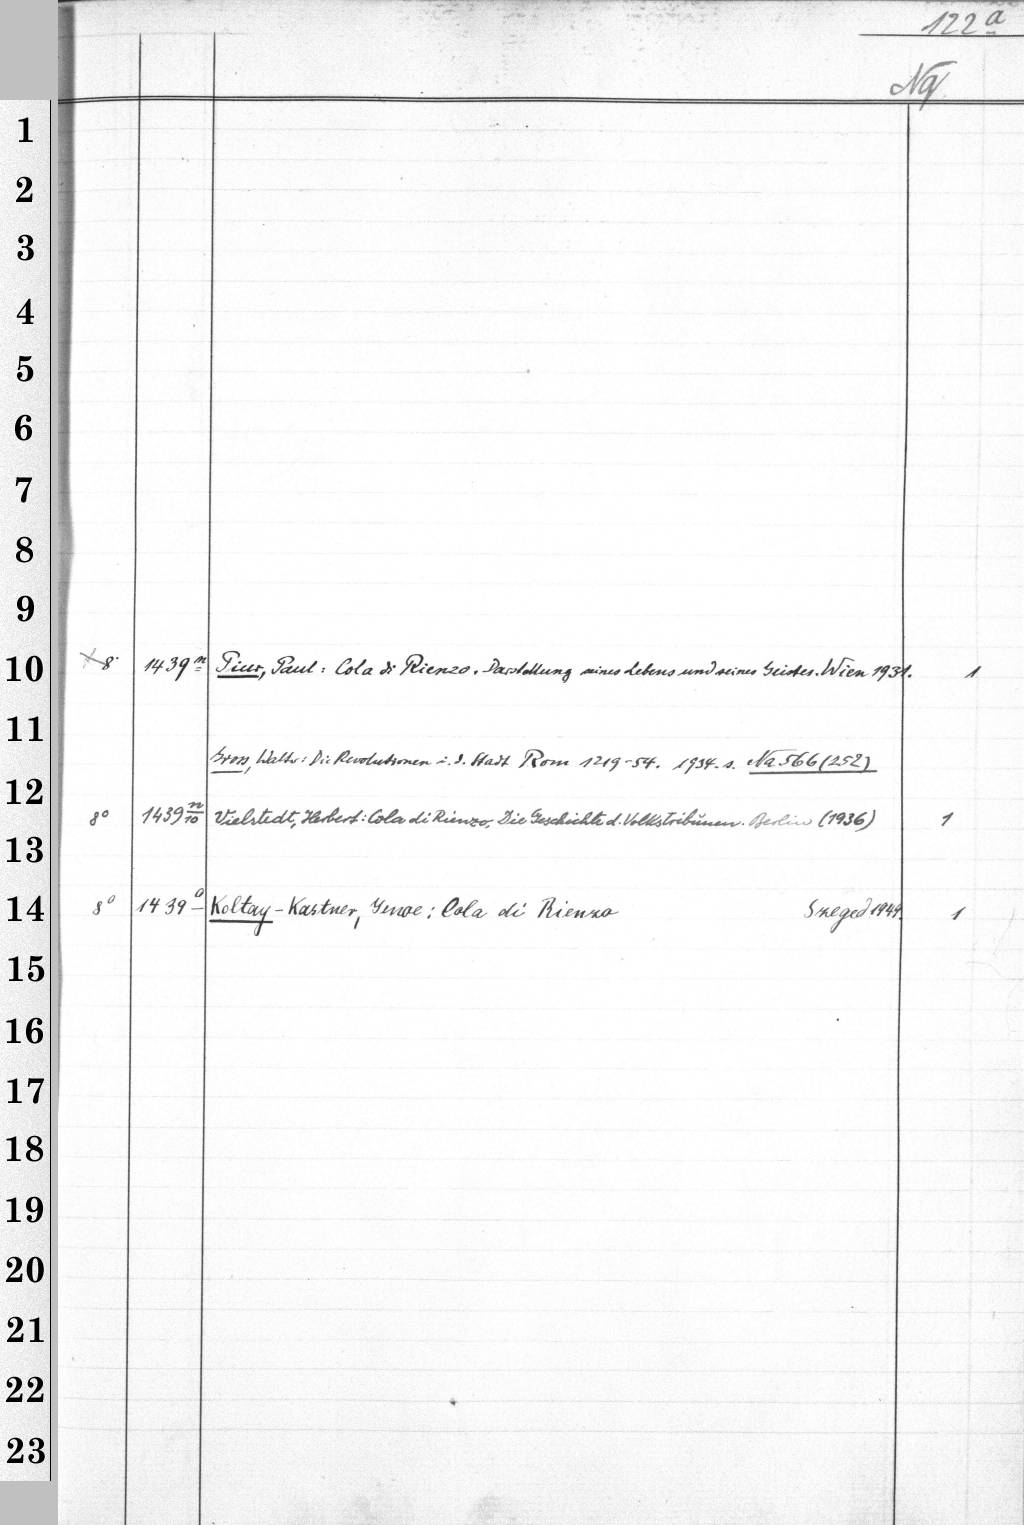 122 a
Nq
1
2
3
4
5
6
7
8
9
10 8° 1439 n Piur, Paul: Cola di Rienzo. Darstellung seines Lebens und seines Geistes. Wien 1931. 1
11
Gross, Walter: Die Revolutionen i. d. Stadt Rom 1219-54. 1934. s. Na 566 (252)
12 8° 1439 n/10 Vielstedt, Herbert: Cola di Rienzo, Die Geschichte d. Volkstribunen. Berlin (1936) 1
13
14 8° 1439 o Koltay-Kastner, Jenoe: Cola di Rienzo Szeged 1949. 1
15
16
17
18
19
20
21
22
23